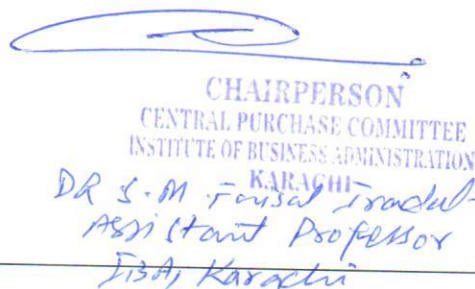 CHAIRPERSON
CENTRAL PURCHASE COMMITTEE
INSTITUTE OF BUSINESS ADMINISTRATION
KARACHI
DR S.M. Faisal
Assistant Professor
IBA, Karachi